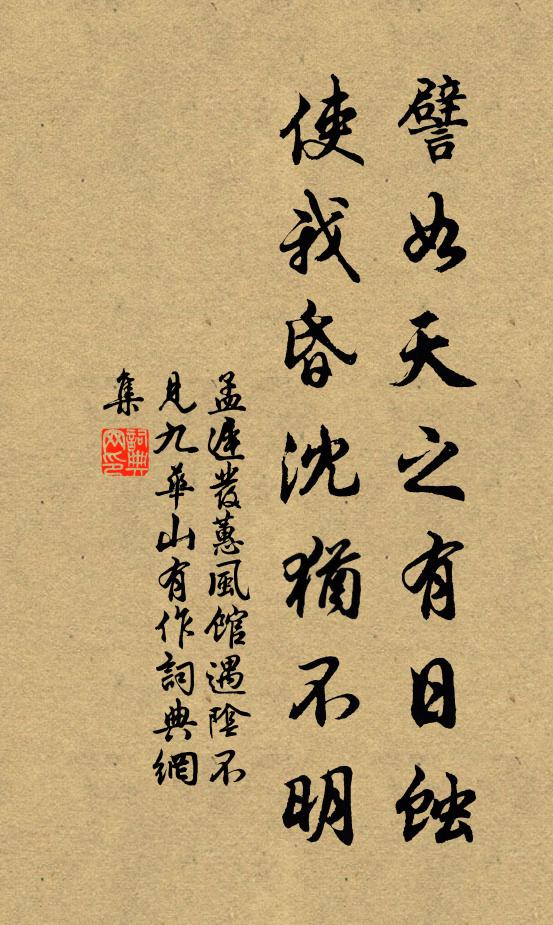 譬如天之有日蝕
使我昏沈猶不明
孟遲發蕙風館遇陰不
見九華山有作詞典網
集
詞典
网印